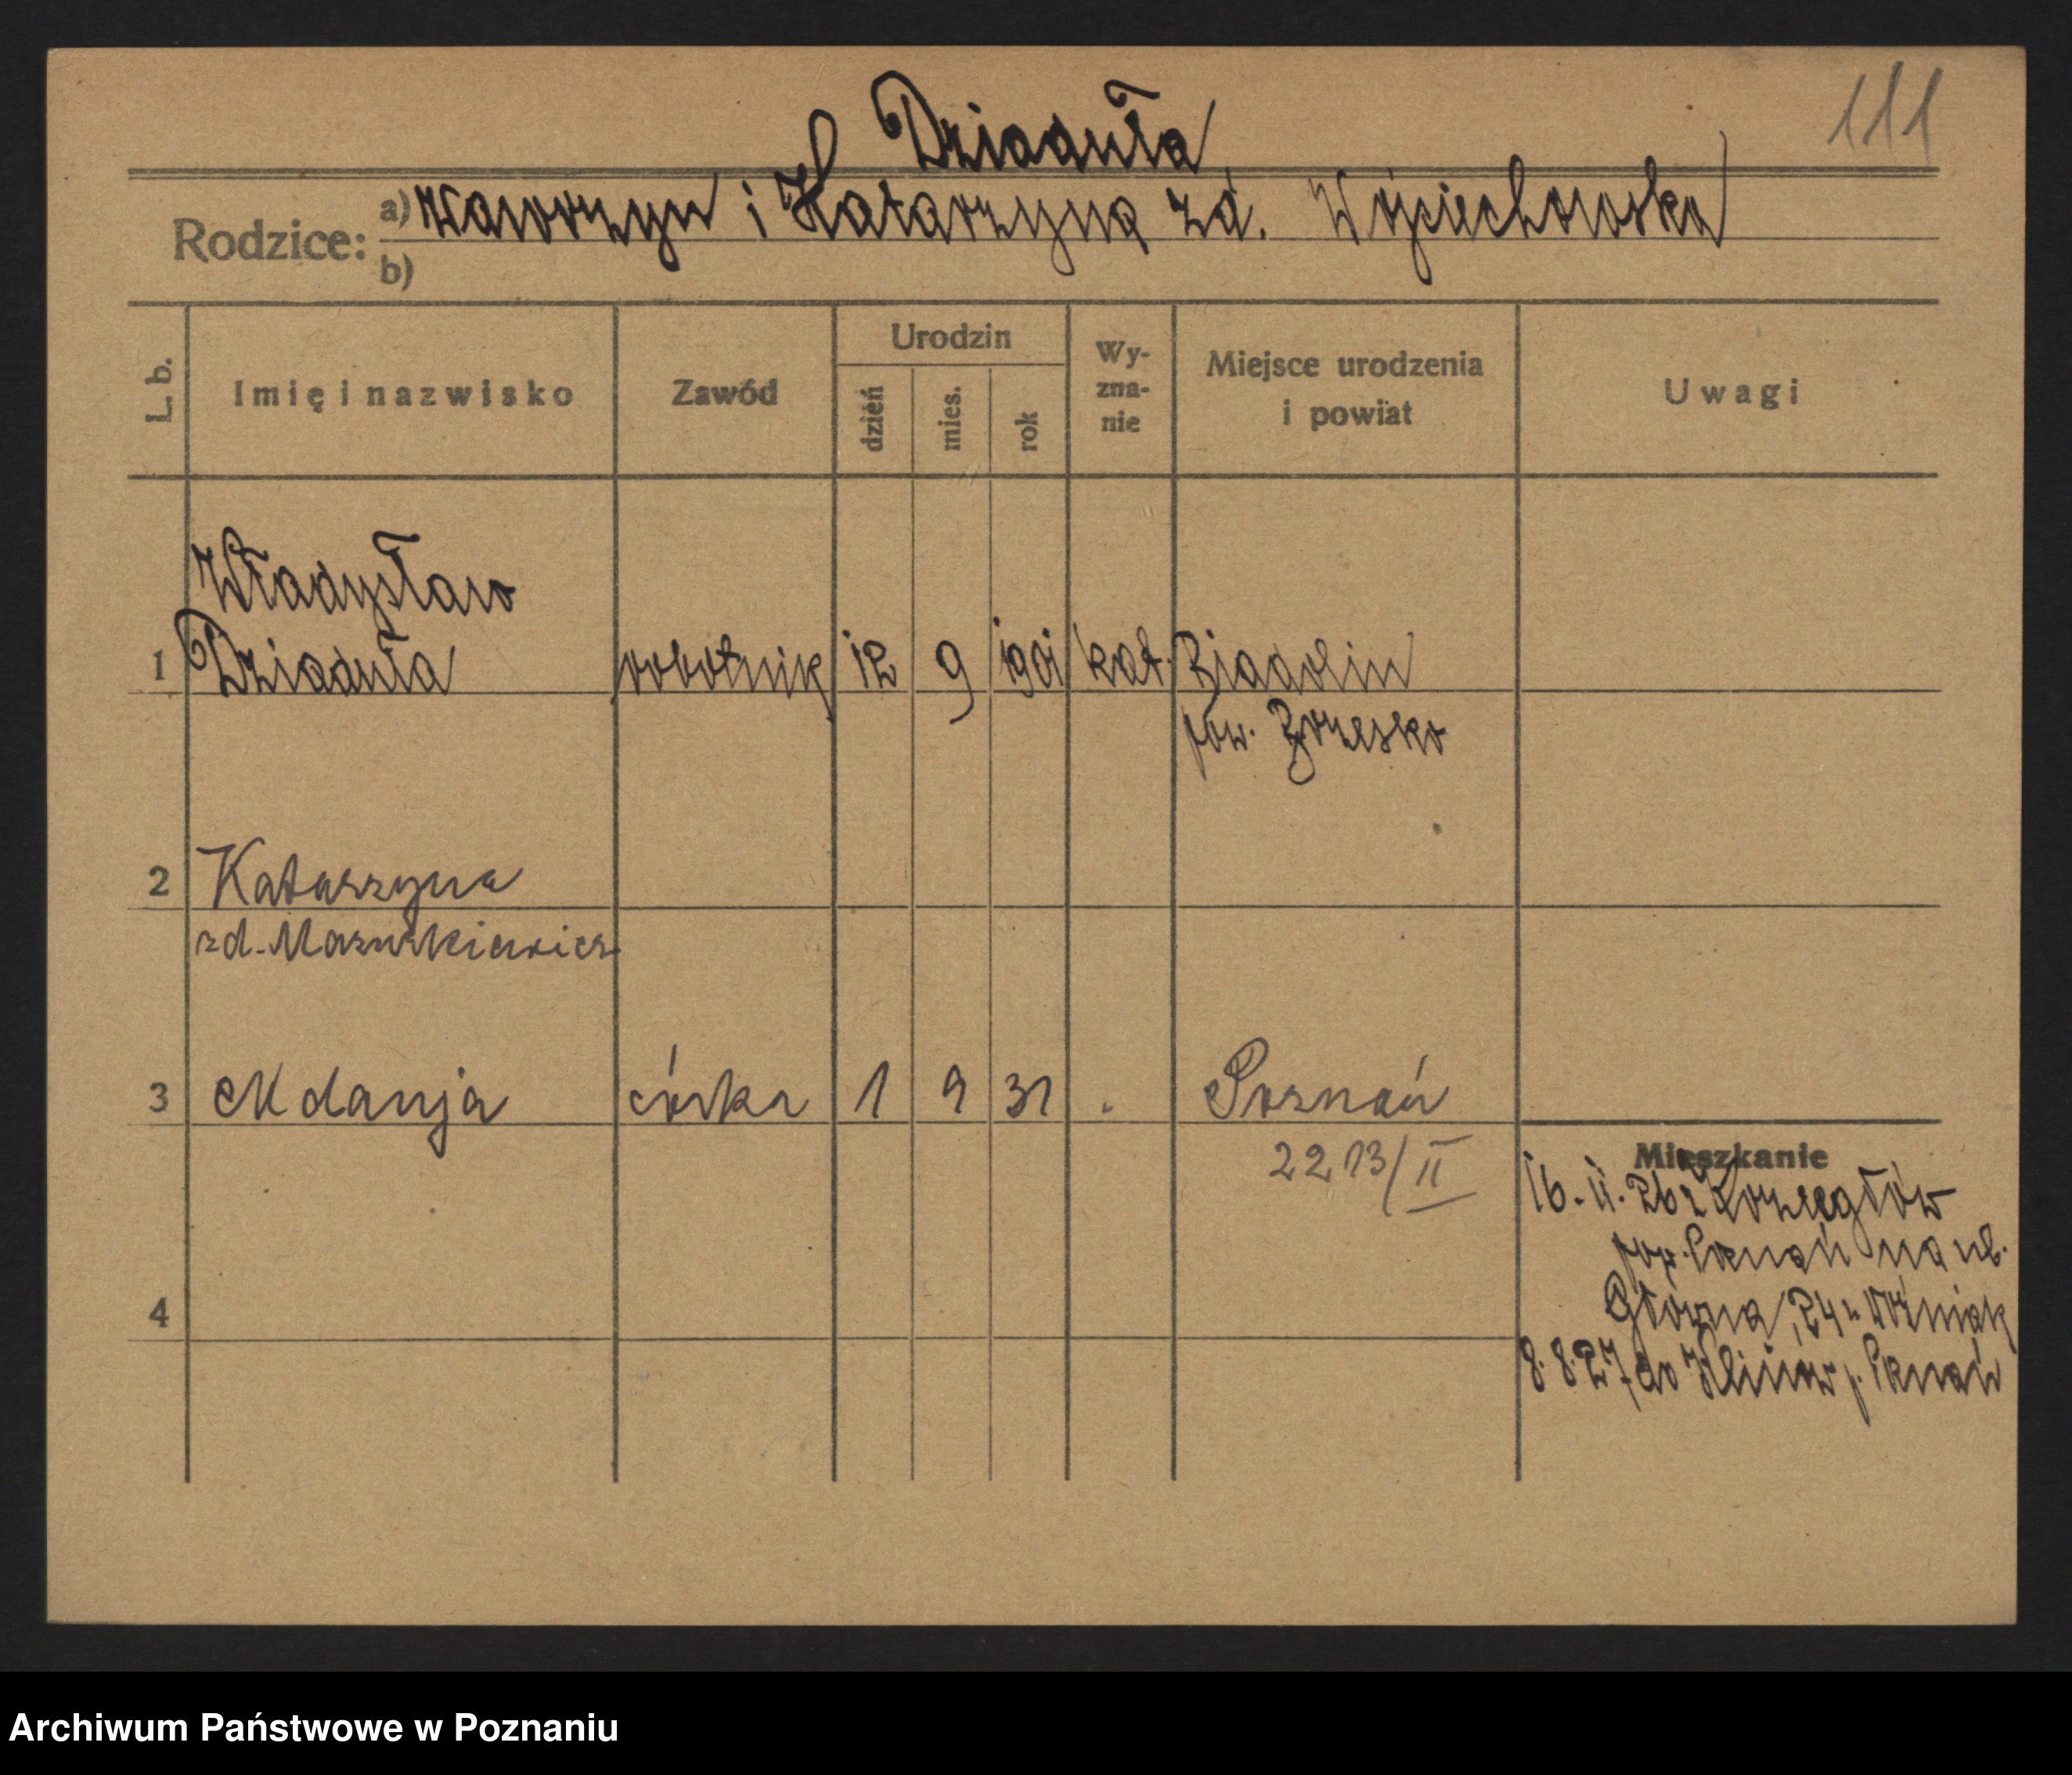 111
Dziaduła
Rodzice: a) Wawrzyn i Katarzyna zd. Wojciechowska
b)
L. b. Imię i nazwisko Zawód Urodzin dzień mies. rok Wy-zna-nie Miejsce urodzenia i powiat Uwagi
Władysław
1 Dziaduła robotnik 12 9 1901 kat. Biadolin
pow. Brzesko
2 Katarzyna
zd. Mazurkiewicz
3 córka 1 9 31 Poznań
2213/II
Mieszkanie
16.11.26 z Koziegłów
pow. Poznań na ul.
4 Główna 24 u Woźniak
8.8.27 do p. Poznań
Archiwum Państwowe w Poznaniu